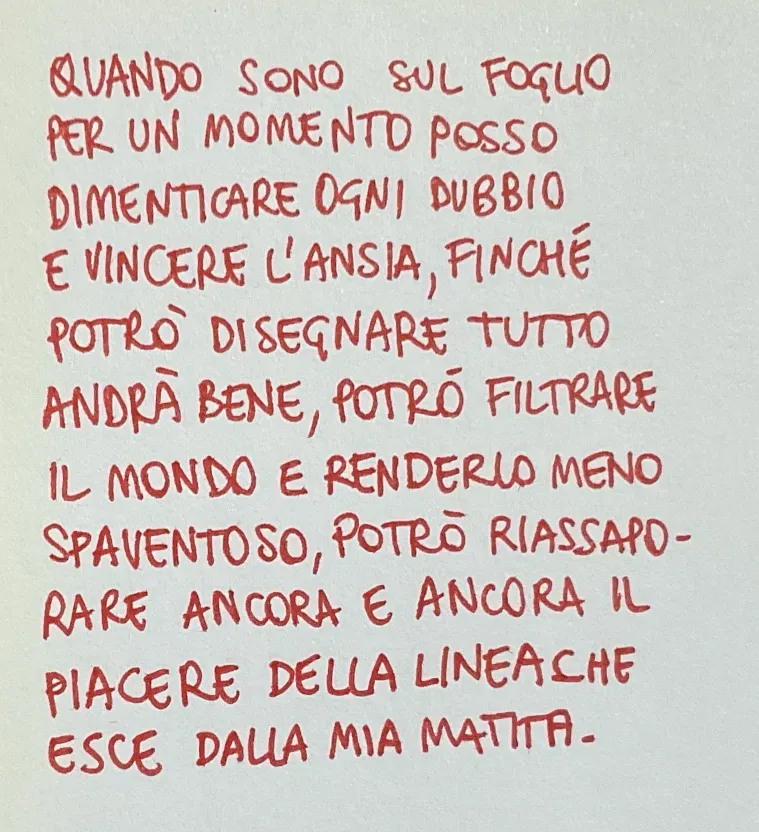 QUANDO SONO SUL FOGLIO
PER UN MOMENTO POSSO
DIMENTICARE OGNI DUBBIO
E VINCERE L'ANSIA, FINCHÉ
POTRÒ DISEGNARE TUTTO
ANDRÀ BENE, POTRÓ FILTRARE
IL MONDO E RENDERLO MENO
SPAVENTOSO, POTRÒ RIASSAPO-
RARE ANCORA E ANCORA IL
PIACERE DELLA LINEA CHE
ESCE DALLA MIA MATITA.